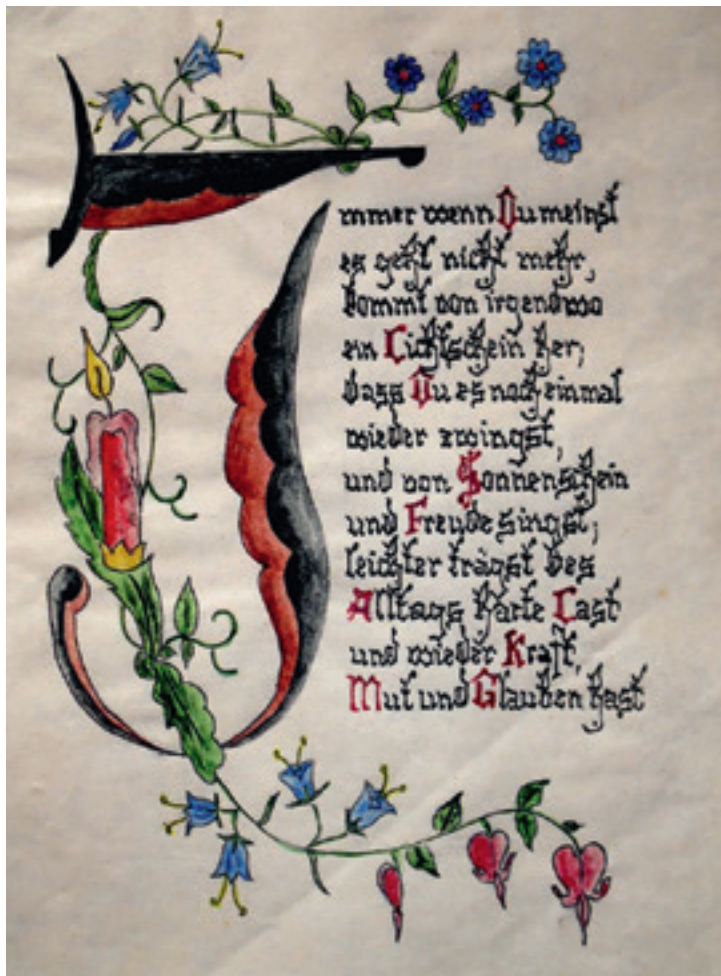 Immer wenn Du meinst
es geht nicht mehr,
kommt von irgendwo
ein Lichtschein her,
dass Du es noch einmal
wieder zwingst,
und von Sonnenschein
und Freude singst,
leichter trägst des
Alltags harte Last
und wieder Kraft,
Mut und Glauben hast